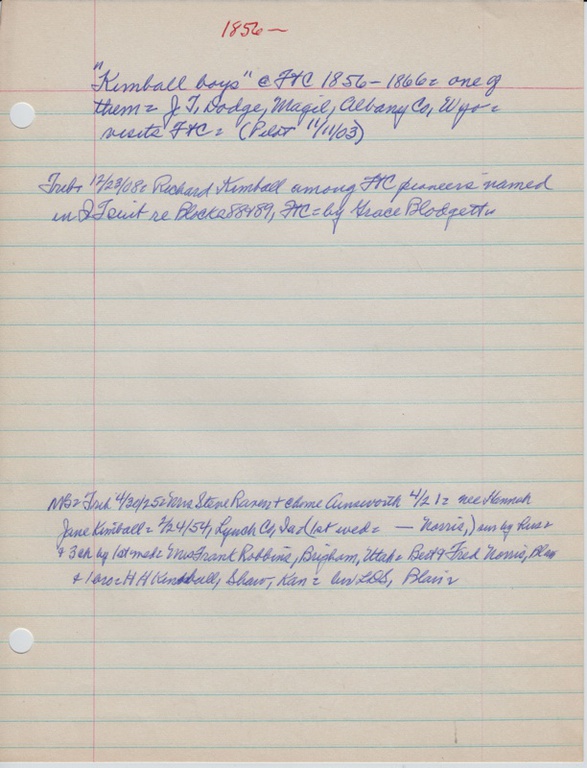 1856—
"Kimball boys" c FtC 1856–1866= one of
them= J. T. Dodge, Magil, Albany Co, Wyo=
visits FtC= (Pilot 11/11/03)
Trib= 12/23/08= Richard Kimball among FtC pioneers named
in suit re Blocks 88+89, FtC= by Grace Blodgett=
NB= Trib 4/30/25= Mrs Steve + c home Ainsworth 4/21= nee Hannah
Jane Kimball= 2/24/54, Lynch Co, (1st wed= — Norris,) sur by hus+
+3 ch by 1st = Mrs Frank Robbins, Brigham, Utah= Bert + Fred Norris, Blair
+1 bro= H H Kimball, Shaw, Kan= LDS, Blair=